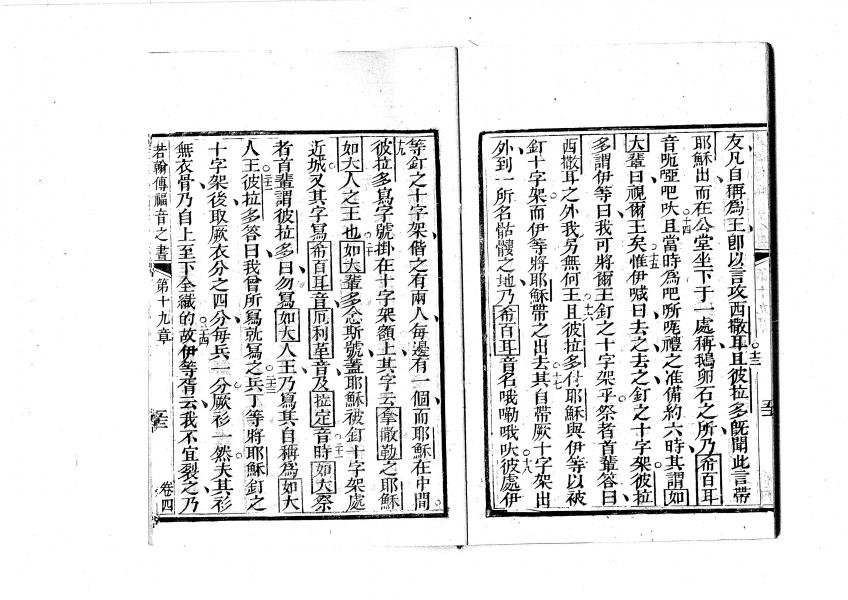 友凡自稱爲王卽以言攻西撒耳且彼拉多旣聞此言帶
十三
耶穌出而在公堂坐下于一處稱鵝卵石之所乃希百耳
音呃啞吧吠且當時爲吧所𠳐禮之准備約六時其謂如
十四
大輩曰視爾王矣惟伊喊曰去之去之釘之十字架彼拉
十五
多謂伊等曰我可將爾王釘之十字架乎祭者首輩答曰
西撒耳之外我另無何王且彼拉多付耶穌與伊等以被
十六
釘十字架而伊等將耶穌帶之出去其自帶厥十字架出
十七
外到一所名骷髏之地乃希百耳音名哦嘞哦吠彼處伊
十八
等釘之十字架偕之有兩人每邊有一個而耶穌在中間
十九
彼拉多寫字號掛在十字架額上其字云拿撒勒之耶穌
如大人之王也如大輩多念斯號蓋耶穌被釘十字架處
二十
近城又其字寫希百耳音厄利革音及拉定音時如大祭
二一
者首輩謂彼拉多曰勿寫如大人王乃寫其自稱爲如大
人王彼拉多答曰我曾所寫就寫之兵丁等將耶穌釘之
二二
二三
十字架後取厥衣分之四分每兵一分厥衫一然夫其衫
無衣骨乃自上至下全織的故伊等胥云我不宜裂之乃
二四
若翰傳福音之書
第十九章
卷四